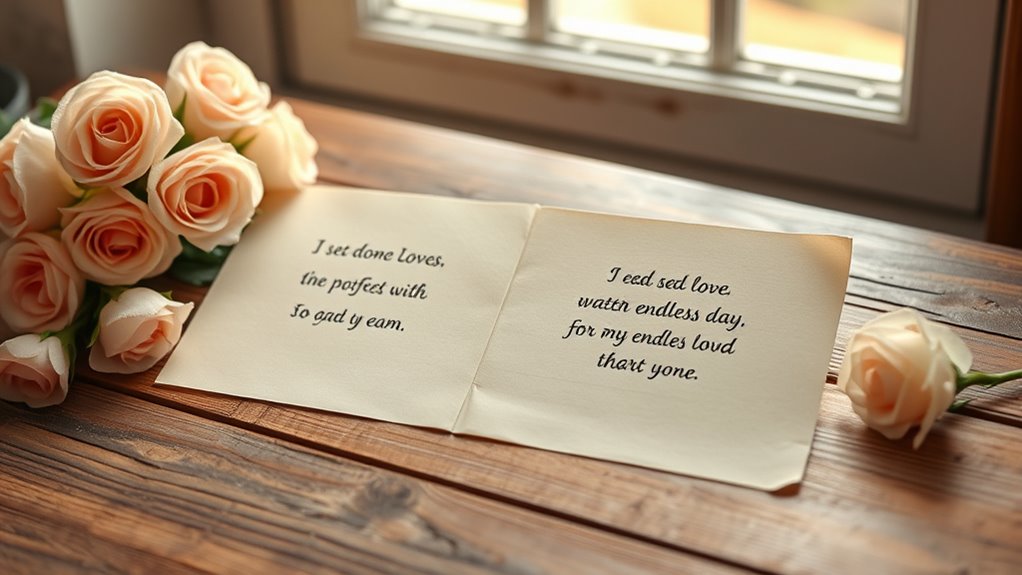 I set done Loves,
the potfect with
So gad ty eam.
I eed sed love
wattn endless day,
for my endles lovd
thart yone.